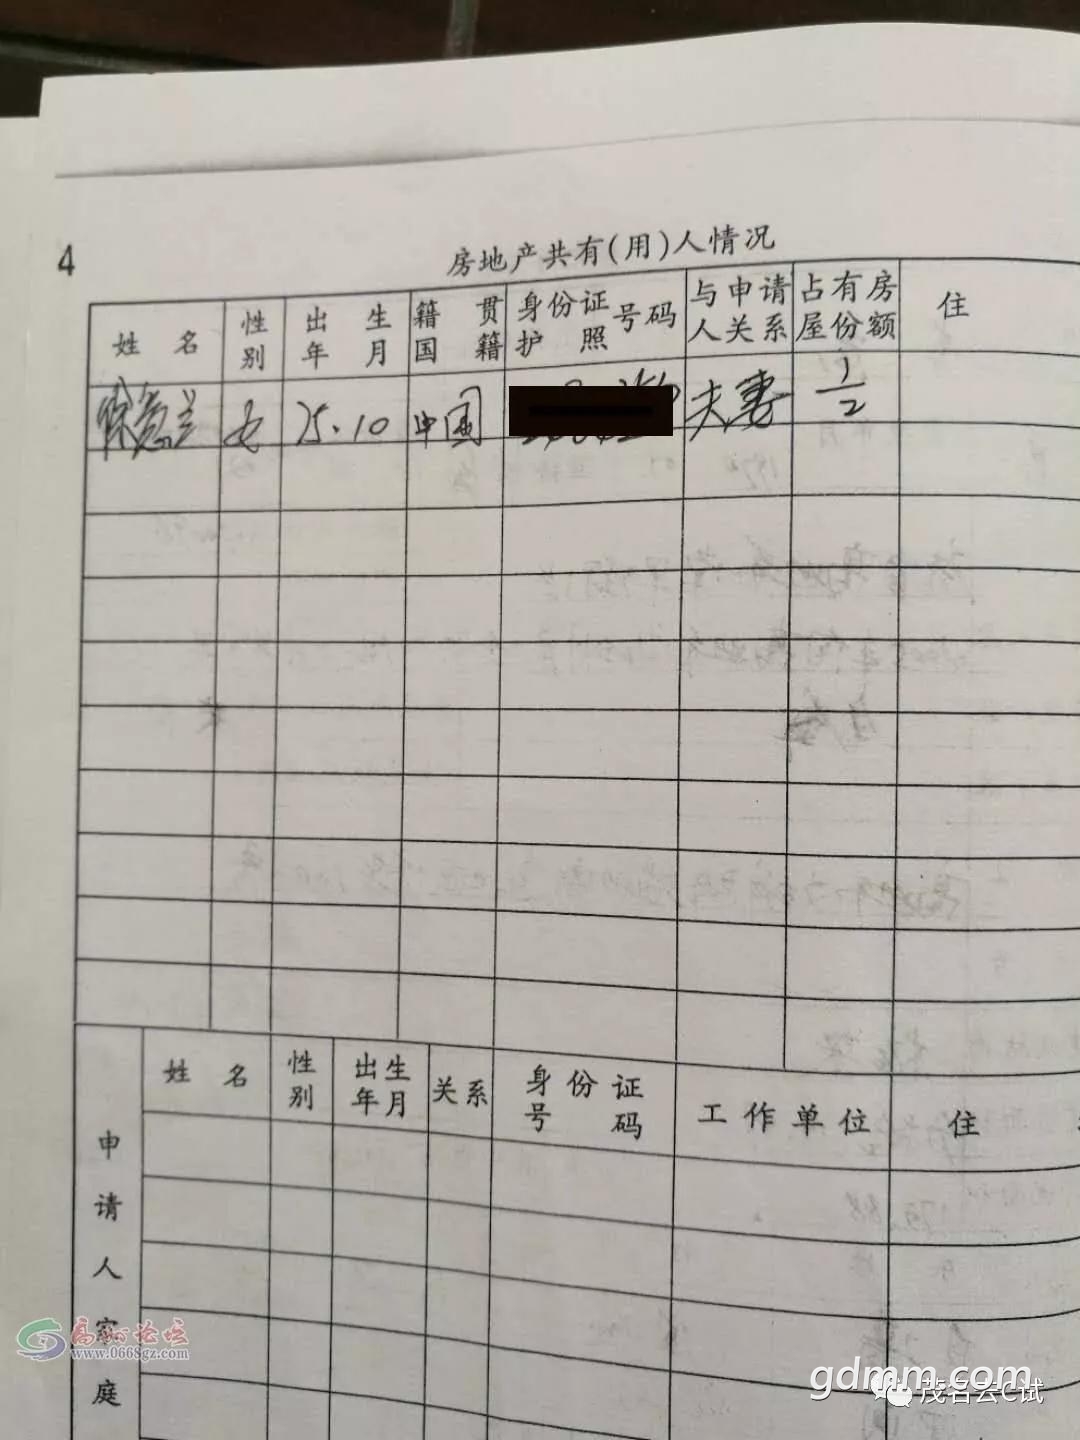 4
房地产共有(用)人情况
姓名 性别 出生年月 籍贯国籍 身份证护照号码 与申请人关系 占有房屋份额 住
女 75.10 中国 夫妻 1/2
姓名 性别 出生年月 关系 身份证号码 工作单位 住
申请人家庭
高州论坛
www.0668gz.com
gdmm.com
茂名云C试